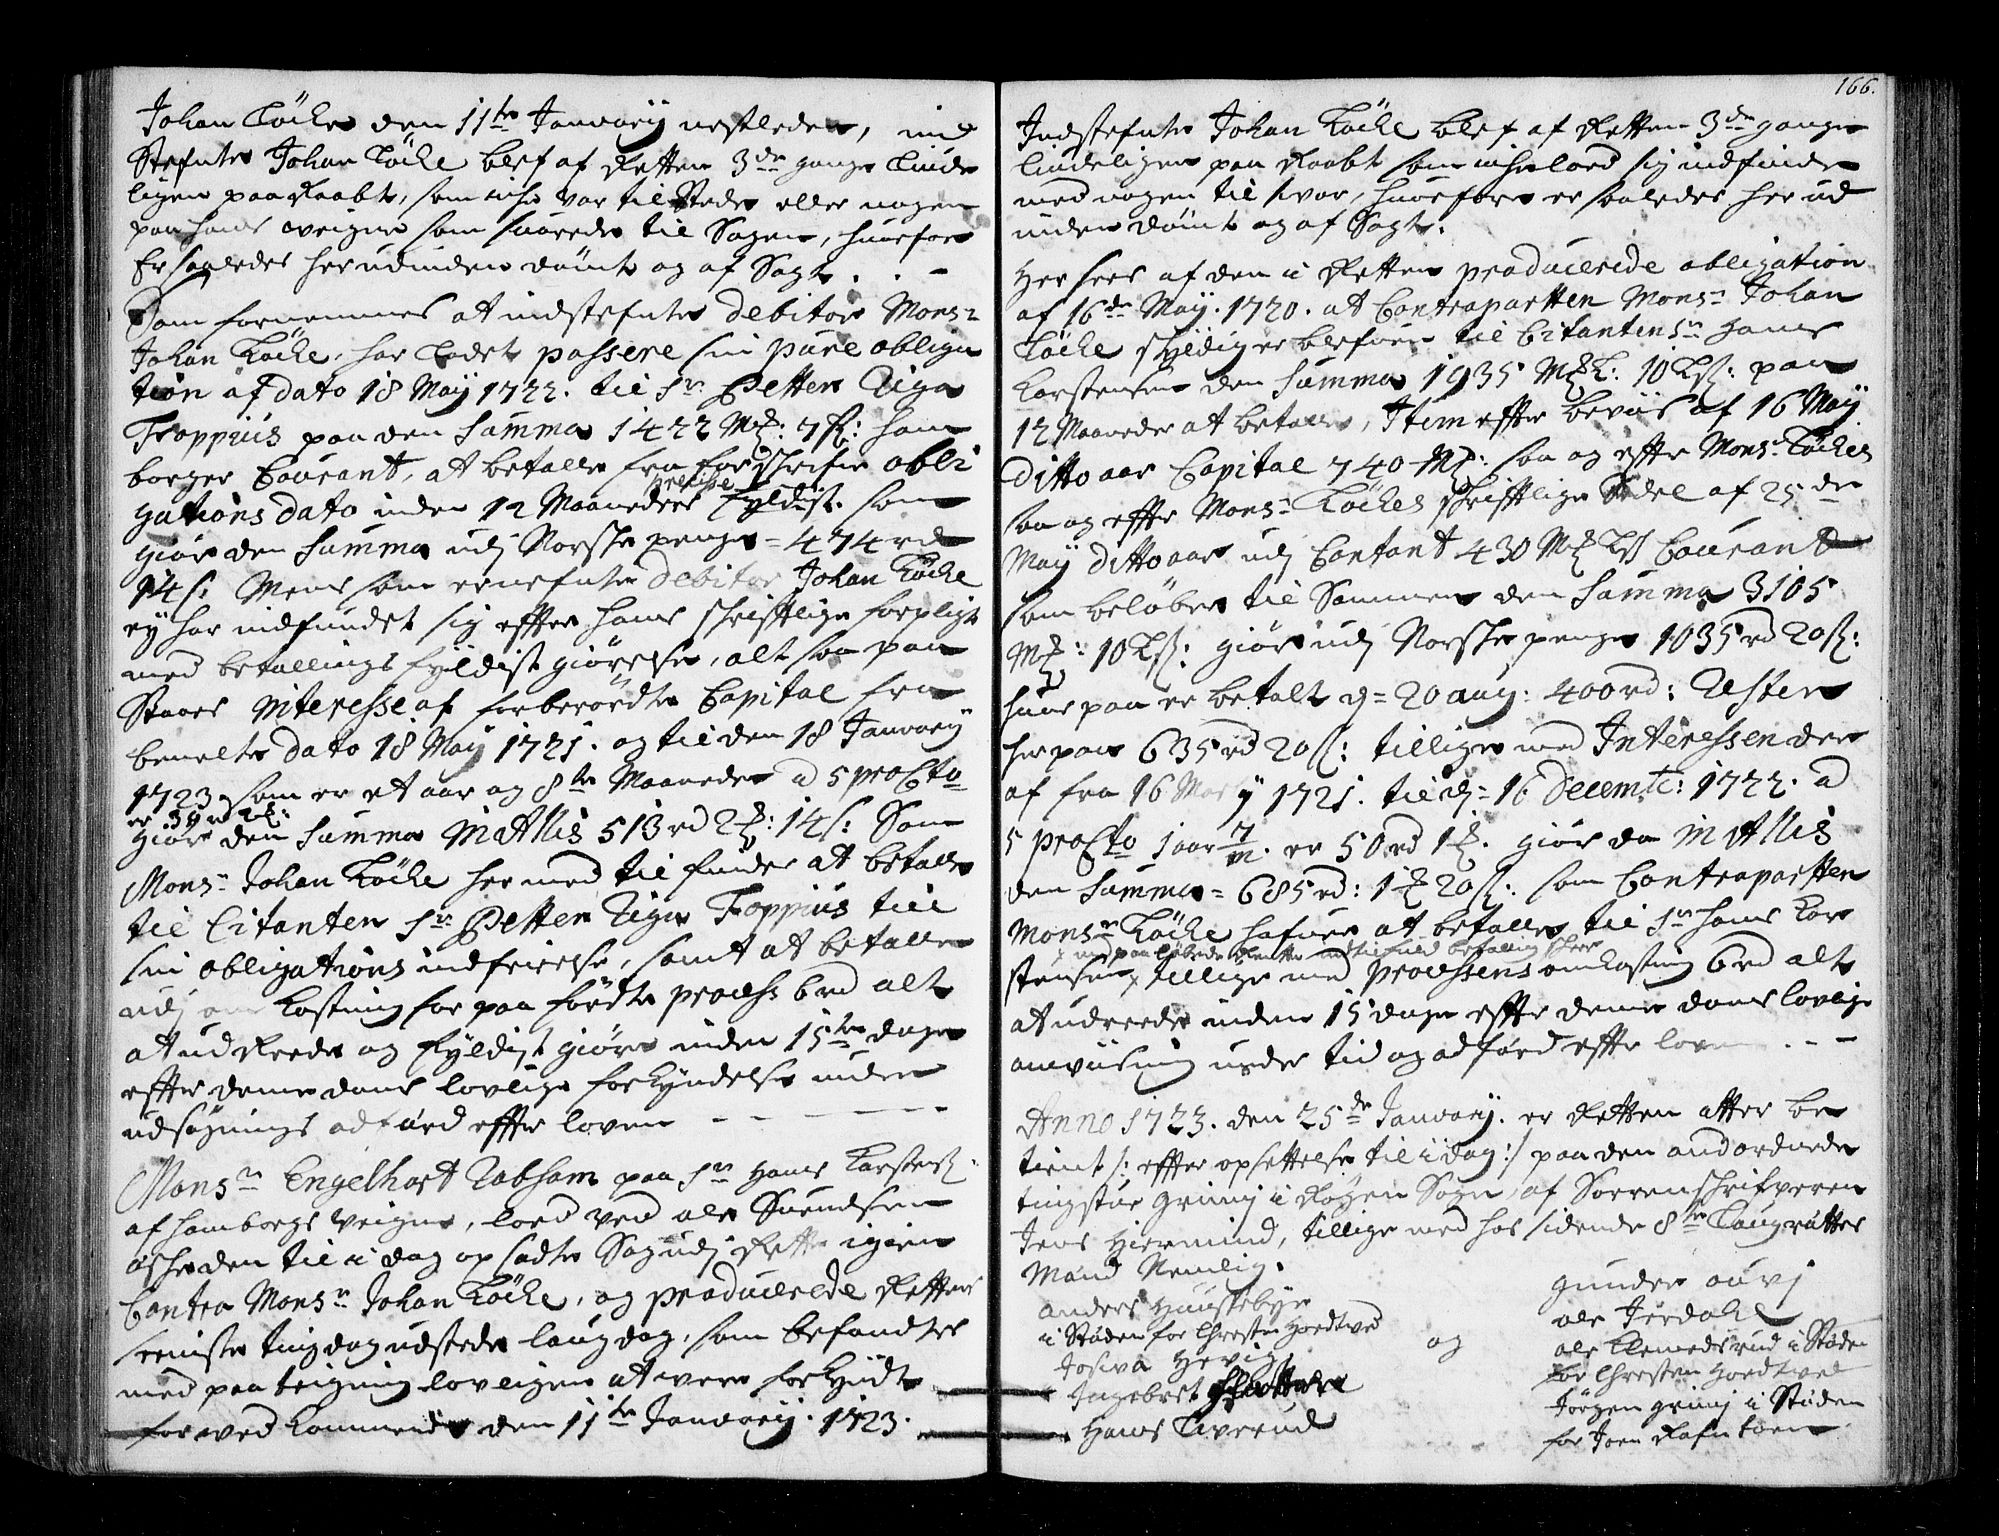 Johan Köche den 11te Januarij nestleden, ind
Stefnte Johan Köche blef af Retten 3de gange lyde
ligen paaRaabt, som iche var tilstede eller nogen
paa hans veigne som svarede til Sagen, hvorfore
Er saaledes herudinden dømt og af Sagt. . –
Som fornemmes at indstefnte Debitor Monsr
Johan Köche, har ladet passere sin pure obliga
tion af dato 18 Maÿ 1722. til Sr Petter
Froppius paa den Summa 1422 Mk: 7 s: ham
borger Courant, at betalle fra forschrefne obli
precisse
gations dato inden 12 Maaneders fyldist. som
giør den Summa udj Norske penge = 474 rd
14 s: Mens som ernefnte Debitor Johan Köche
ey har indfundet sig efter hans schrifftlige forpligt
med betallings fyldistgiørelse, alt saa paa
Staaes Interesse af forberørdte Capital fra
bemelte dato 18 Maÿ 1721. og til den 18 Januarij
1723 som er et aar og 8te Maaneder a 5 proCto
er 39 rd 2 k:
giør den Summa in Allis 513 rd 2 k: 14 s: Som
Monsr Johan Köche hermed tilfindes at betalle
til Citanten Sr Petter Froppius til
sin obligations indfrielse, samt at betalle
udj om Kostning for paa førdte process 6 rd alt
at udRede og fyldist giøre inden 15ten dage
efter denne doms lovlige forkyndelse under
udsøgnings adfærd effter loven – – – – –
Monsr Engelhart Robsom paa Sr Hans Karstens:
af Hamborgs Veigne, loed ved ole Svendsen
æske den til i dag opsadte Sag udj Rette igien
Contra Monsr Johan Köche, og producerede Rettens
seeniste tingdag udstede laugdag, som befandtes
med paategning lovligen at were forkyndt
for vedkommende den 11te Januarij. 1723.
166.
Indstefnte Johan Köche blef af Retten 3de gange
lydeligen paa Raabt som iche loed sig indfinde
med nogen til svar, hvorfore er saaledes her ud
inden dømt og af Sagt.
Her sees af den i Retten producerede obligation
af 16de Maÿ. 1720. at Contraparten Monsr Johan
Köche skyldig er blefven til Citanten Sr Hans
Karstensen den Summa 1935 Mk L: 10 Ls: paa
12 Maaneder at betalle, Item effter beviis af 16 Maÿ
Ditto aar Capital 740 Mk: saa og effter Monsr Köches
saa og effter Monsr Köches schrifftlige Sedel af 25de
Maÿ ditto aar udj Contant 430 Mk Ls Courant
som beløber til Sammen den Summa 3105
Mk: 10 Ls: giør udj Norske penge 1035 rd 20 s:
hvor paa er betalt d = 20 aug: 400 rd: Rester
herpaa 635 rd 20 s: tillige med Interessen der
af fra 16 Maÿ 1721. til d = 16 Decembr: 1722. a
5 proCto 1 aar 7/m. er 50 rd 1 k. giør da in Allis
den Summa = 685 rd: 1 k 20 s: som Contraparten
Monsr Köche hafver at betalle til Sr Hans Kar
x med paaløbende Rentte indtil fuld betaling scheer
stensen x tillige med Processens omkostning 6 rd alt
at udreede inden 15 dage effter denne doms lovlige
anviisning under tid og adfærd effter loven – – –
Anno 1723. den 25de Januarij. er Retten atter be
tient /: effter opsettelse til i dag :/ paa den andordnede
tingstue grimj i Røgen Sogn af Sorrenschrifveren
Jens Hiermind, tillige med hos sidende 8te Laugrættes
Mænd Nemlig.
anders Hunstebye
i Støden for Chresten Hordtved
Josva Hevig
Ingebret
Hans Liverud
og
gunder aurj
ole Jerdahl
ole Klemedsrud i Støden
for Chresten Hordtved
Jørgen grimj i Støden
for Joen Rafntoen